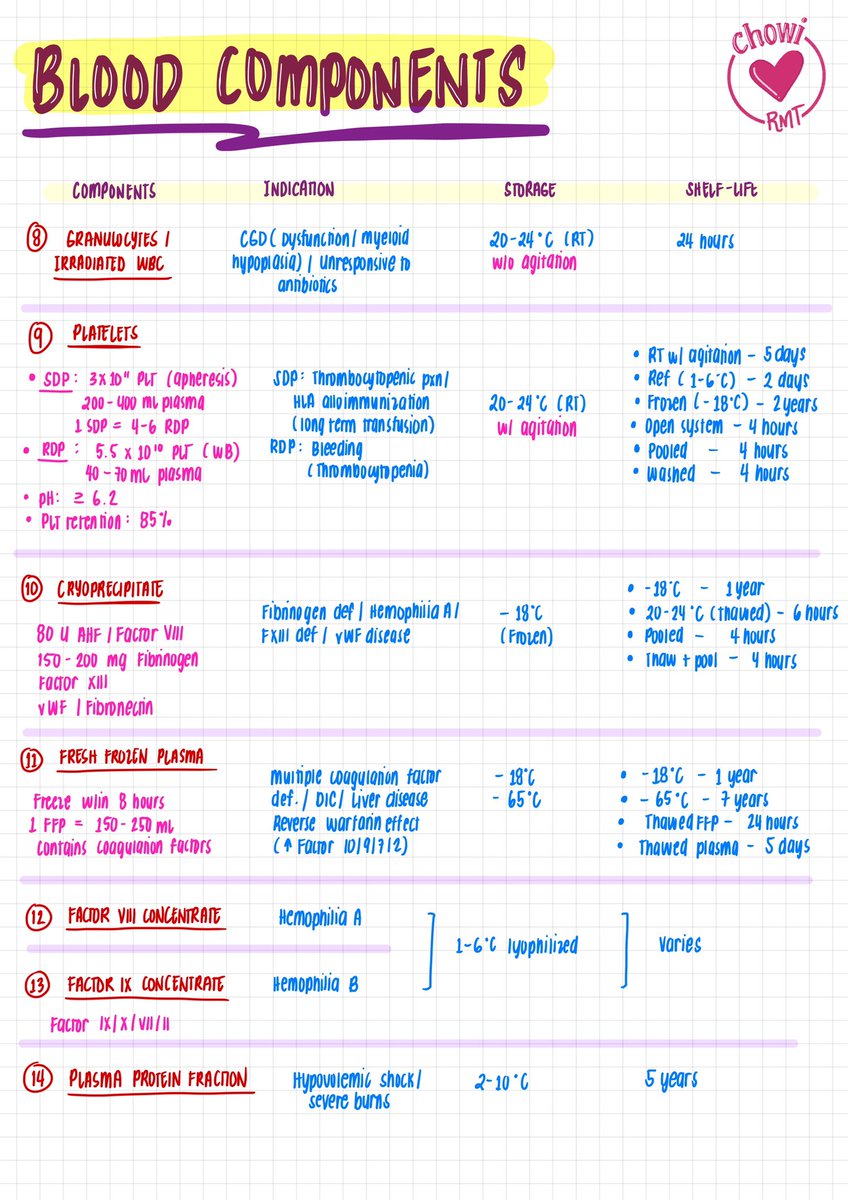 BLOOD COMPONENTS
chowi
RMT
COMPONENTS INDICATION STORAGE SHELF-LIFE
8 GRANULOCYTES / IRRADIATED WBC
CGD (Dysfunction / myeloid
hypoplasia) / Unresponsive to
antibiotics
20-24°C (RT)
w/o agitation
24 hours
9 PLATELETS
• SDP: 3x10¹¹ PLT (apheresis)
200-400 mL plasma
1 SDP = 4-6 RDP
• RDP: 5.5 x 10¹⁰ PLT (WB)
40-70 mL plasma
• pH: ≥ 6.2
• PLT retention: 85%
SDP: Thrombocytopenic pxn/
HLA alloimmunization
(long term transfusion)
RDP: Bleeding
(Thrombocytopenia)
20-24°C (RT)
w/ agitation
• RT w/ agitation - 5 days
• Ref (1-6°C) - 2 days
• Frozen (-18°C) - 2 years
• Open system - 4 hours
• Pooled - 4 hours
• Washed - 4 hours
10 CRYOPRECIPITATE
80 U AHF / Factor VIII
150-200 mg Fibrinogen
Factor XIII
vWF / Fibronectin
Fibrinogen def / Hemophilia A /
FXIII def / vWF disease
-18°C
(Frozen)
• -18°C - 1 year
• 20-24°C (thawed) - 6 hours
• Pooled - 4 hours
• Thaw + pool - 4 hours
11 FRESH FROZEN PLASMA
Freeze w/in 8 hours
1 FFP = 150-250 mL
Contains coagulation factors
Multiple coagulation factor
def. / DIC / Liver disease
Reverse warfarin effect
(↑ Factor 10/9/7/2)
-18°C
-65°C
• -18°C - 1 year
• -65°C - 7 years
• Thawed FFP - 24 hours
• Thawed plasma - 5 days
12 FACTOR VIII CONCENTRATE
Hemophilia A
1-6°C lyophilized
varies
13 FACTOR IX CONCENTRATE
Factor IX/X/VII/II
Hemophilia B
14 PLASMA PROTEIN FRACTION
Hypovolemic shock/
severe burns
2-10°C
5 years